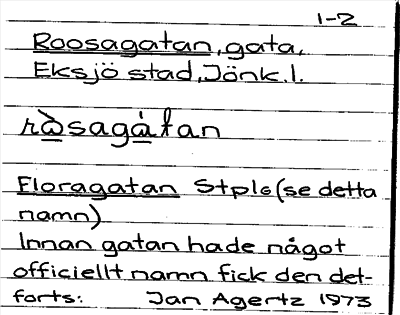 1-2
Roosagatan, gata,
Eksjö stad, Jönk.l.
ràsagátan
Floragatan Stpl6 (se detta
namn)
Innan gatan hade något
officiellt namn fick den det-
forts: Jan Agertz 1973